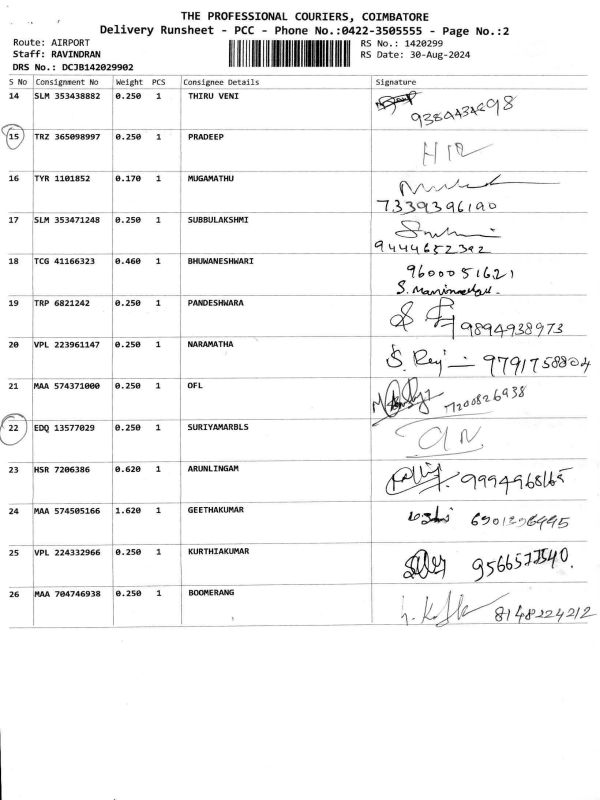 THE PROFESSIONAL COURIERS, COIMBATORE
Delivery Runsheet - PCC - Phone No.:0422-3505555 - Page No.:2
Route: AIRPORT RS No.: 1420299
Staff: RAVINDRAN RS Date: 30-Aug-2024
DRS No.: DCJB142029902
S No Consignment No Weight PCS Consignee Details Signature
14 SLM 353438882 0.250 1 THIRU VENI
15 TRZ 365098997 0.250 1 PRADEEP
16 TYR 1101852 0.170 1 MUGAMATHU
7339396190
17 SLM 353471248 0.250 1 SUBBULAKSHMI
9444652392
18 TCG 41166323 0.460 1 BHUWANESHWARI 9600051621
19 TRP 6821242 0.250 1 PANDESHWARA 9894938973
20 VPL 223961147 0.250 1 NARAMATHA 9791758804
21 MAA 574371000 0.250 1 OFL 7200826938
22 EDQ 13577029 0.250 1 SURIYAMARBLS
23 HSR 7206386 0.620 1 ARUNLINGAM
24 MAA 574505166 1.620 1 GEETHAKUMAR
25 VPL 224332966 0.250 1 KURTHIAKUMAR
26 MAA 704746938 0.250 1 BOOMERANG 8148224212